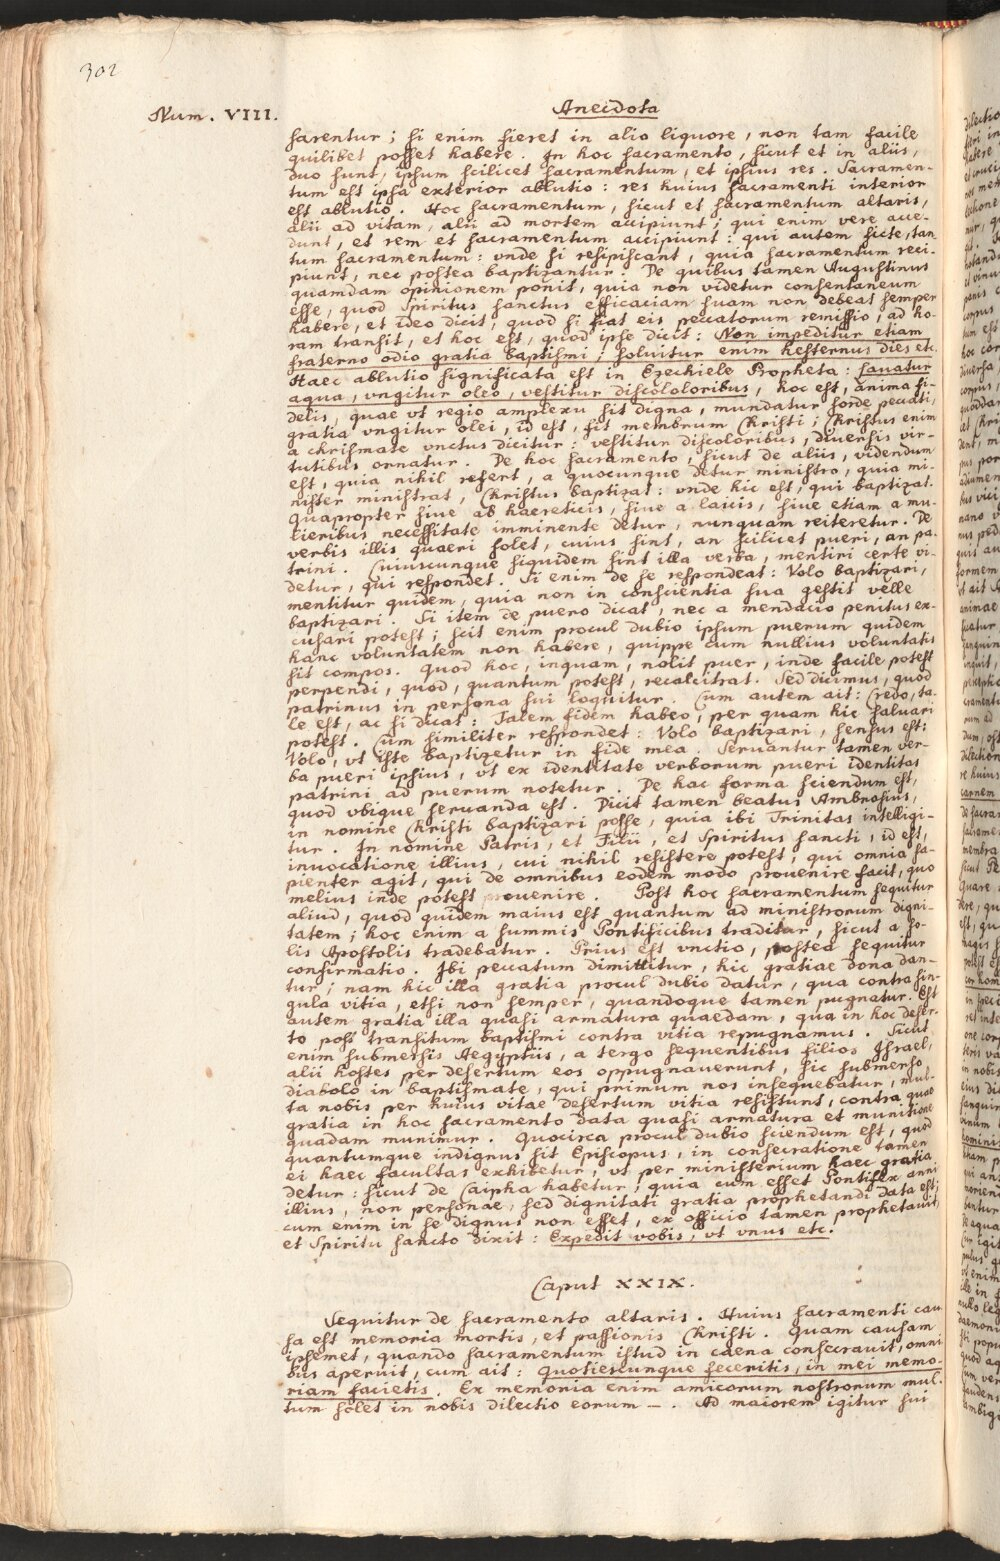 302
Num. VIII.
Anecdota
sarentur; si enim fieret in alio liquore, non tam facile
quilibet posset habere. In hoc sacramento, sicut et in aliis,
duo sunt, ipsum scilicet sacramentum, et ipsius res. Sacramen-
tum est ipsa exterior ablutio: res huius sacramenti interior
est ablutio. Hoc sacramentum, sicut et sacramentum altaris,
alii ad vitam, alii ad mortem accipiunt; qui enim vere acce-
dunt, et rem et sacramentum accipiunt: qui autem ficte, tan
tum sacramentum: vnde si resipiscant, quia sacramentum reci-
piunt, nec postea baptizantur. De quibus tamen Augustinus
quamdam opinionem ponit, quia non videtur consentaneum
esse, quod Spiritus sanctus efficaciam suam non debeat semper
habere, et ideo dicit, quod si fiat eis peccatorum remissio, ad ho-
ram transit, et hoc est, quod ipse dicit: Non impeditur etiam
fraterno odio gratia baptismi; soluitur enim hesternus dies etc.
Haec ablutio significata est in Ezechiele Propheta: sanatur
aqua, vngitur oleo, vestitur discololoribus, hoc est, anima fi-
delis, quae vt regio amplexu sit digna, mundatur sorde peccati,
gratia vngitur olei, id est, fit membrum Christi; Christus enim
a chrismate vnctus dicitur: vestitur discoloribus, diuersis vir-
tutibus ornatur. De hoc sacramento, sicut de aliis, videndum
est, quia nihil refert, a quocunque detur ministro, quia mi-
nister ministrat, Christus baptizat: vnde hic est, qui baptizat.
Quapropter siue ab haereticis, siue a laicis, siue etiam a mu-
lieribus necessitate imminente detur, nunquam reiteretur. De
verbis illis quaeri solet, cuius sint, an scilicet pueri, an pa-
trini. Cuiuscunque siquidem sint illa verba, mentiri certe vi-
detur, qui respondet. Si enim de se respondeat: Volo baptizari,
mentitur quidem, quia non in conscientia sua gestit velle
baptizari. Si item de puero dicat, nec a mendacio penitus ex-
cusari potest; scit enim procul dubio ipsum puerum quidem
hanc voluntatem non habere, quippe cum nullius voluntatis
sit compos. Quod hoc, inquam, nolit puer, inde facile potest
perpendi, quod, quantum potest, recalcitrat. Sed dicimus, quod
patrinus in persona sui loquitur. Cum autem ait: Credo, ta-
le est, ac si dicat: Talem fidem habeo, per quam hic saluari
potest. Cum similiter respondet: Volo baptizari, sensus est:
Volo, vt iste baptizetur in fide mea. Seruantur tamen ver-
ba pueri ipsius, vt ex identitate verborum pueri identitas
patrini ad puerum notetur. De hac forma sciendum est,
quod vbique seruanda est. Dicit tamen beatus Ambrosius,
in nomine Christi baptizari posse, quia ibi Trinitas intelligi-
tur. In nomine Patris, et Filii, et Spiritus sancti, id est,
inuocatione illius, cui nihil resistere potest, qui omnia sa-
pienter agit, qui de omnibus eodem modo prouenire facit, quo
melius inde potest prouenire. Post hoc sacramentum sequitur
aliud, quod quidem maius est quantum ad ministrorum digni-
tatem; hoc enim a summis Pontificibus traditur, sicut a so-
lis Apostolis tradebatur. Prius est vnctio, postea sequitur
confirmatio. Ibi peccatum dimittitur, hic gratiae dona dan-
tur; nam hic illa gratia procul dubio datur, qua contra sin-
gula vitia, etsi non semper, quandoque tamen pugnatur. Est
autem gratia illa quasi armatura quaedam, qua in hoc deser-
to post transitum baptismi contra vitia repugnamus. Sicut
enim submersis Aegyptiis, a tergo sequentibus filios Israel,
alii hostes per desertum eos oppugnauerunt, sic submerso
diabolo in baptismate, qui primum nos insequebatur, mul-
ta nobis per huius vitae desertum vitia resistunt, contra quae
gratia in hoc sacramento data quasi armatura et munitione
quadam munimur. Quocirca procul dubio sciendum est, quod
quantumque indignus sit Episcopus, in consecratione tamen
ei haec facultas exhibetur, vt per ministerium haec gratia
detur: sicut de Caipha habetur; quia cum esset Pontifex anni
illius, non personae, sed dignitati gratia prophetandi data est;
cum enim in se dignus non esset, ex officio tamen prophetauit,
et Spiritu sancto dixit: Expedit vobis, vt vnus etc.
Caput XXIX.
Sequitur de sacramento altaris. Huius sacramenti cau
sa est memoria mortis, et passionis Christi. Quam causam
ipsemet, quando sacramentum istud in caena consecrauit, omni
bus aperuit, cum ait: Quotiescunque feceritis, in mei memo-
riam facietis. Ex memoria enim amicorum nostrorum mul-
tum solet in nobis dilectio eorum -. Ad maiorem igitur sui